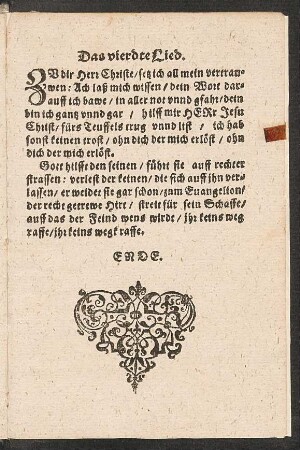 Das vierdte Lied.
ZV dir Herr Christe/ setz ich all mein vertraw-
wen: Ach laß mich wissen/ dein Wort dar-
auff ich bawe/ in aller not vnnd gfahr/ dein
bin ich gantz vnnd gar / hilff mir HERr Jesu
Christ/ fürs Teuffels trug vnnd list / ich hab
sonst keinen trost/ ohn dich der mich erlöst / ohn
dich der mich erlöst.
Gott hilfft den seinen / führt sie auff rechter
strassen: verlest der keinen/ die sich auff jhn ver-
lassen/ er weidet sie gar schon/ zum Euangelion/
der recht getrewe Hirt / streit für sein Schaffe/
auff das der Feind wens wirdt/ jhr keins weg
raffe/ jhr keins wegk raffe.
ENDE.